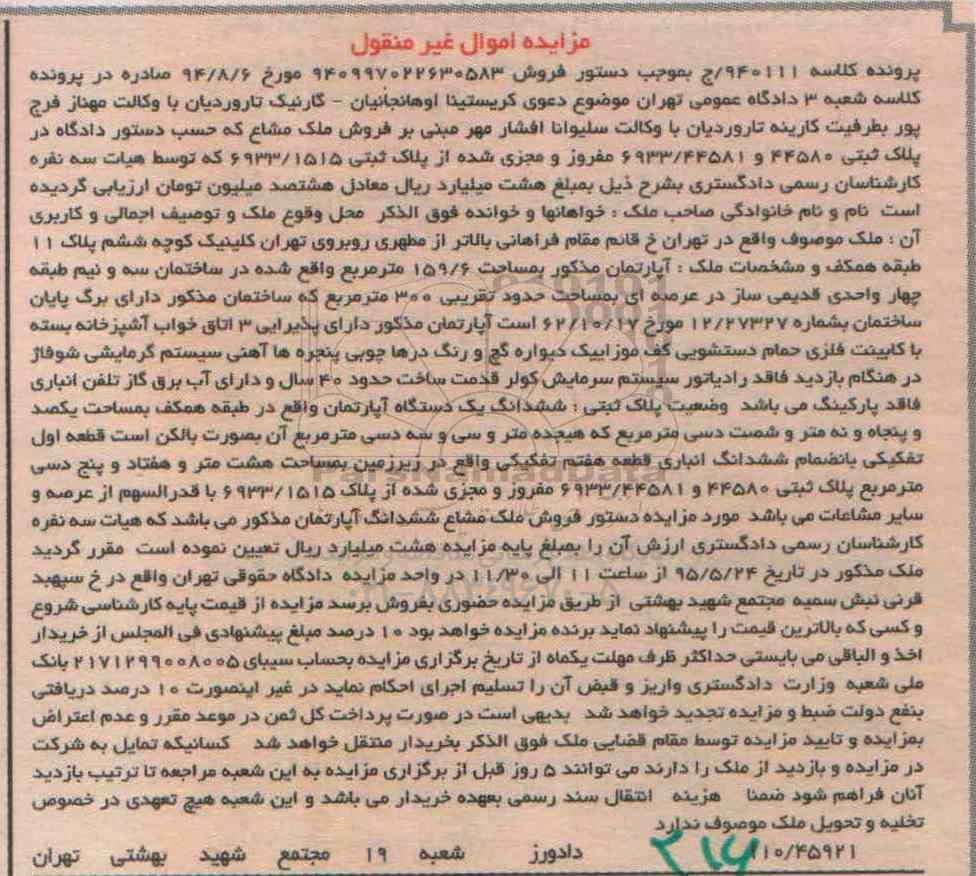 مزایده اموال غیر منقول
پرونده کلاسه ۹۴۰۱۱۱/ج بموجب دستور فروش ۹۴۰۹۹۷۰۲۲۶۳۰۵۸۳ مورخ ۹۴/۸/۶ صادره در پرونده
کلاسه شعبه ۳ دادگاه عمومی تهران موضوع دعوی کریستینا اوهانجانیان - گارنیک تاروردیان با وکالت مهناز فرج
پور بطرفیت کارینه تاروردیان با وکالت سلیوانا افشار مهر مبنی بر فروش ملک مشاع که حسب دستور دادگاه در
پلاک ثبتی ۴۴۵۸۰ و ۶۹۳۳/۴۴۵۸۱ مفروز و مجزی شده از پلاک ثبتی ۶۹۳۳/۱۵۱۵ که توسط هیات سه نفره
کارشناسان رسمی دادگستری بشرح ذیل بمبلغ هشت میلیارد ریال معادل هشتصد میلیون تومان ارزیابی گردیده
است نام و نام خانوادگی صاحب ملک : خواهانها و خوانده فوق الذکر محل وقوع ملک و توصیف اجمالی و کاربری
آن : ملک موصوف واقع در تهران خ قائم مقام فراهانی بالاتر از مطهری روبروی تهران کلینیک کوچه ششم پلاک ۱۱
طبقه همکف و مشخصات ملک : آپارتمان مذکور بمساحت ۱۵۹/۶ مترمربع واقع شده در ساختمان سه و نیم طبقه
چهار واحدی قدیمی ساز در عرصه ای بمساحت حدود تقریبی ۳۰۰ مترمربع که ساختمان مذکور دارای برگ پایان
ساختمان بشماره ۱۲/۲۷۳۲۷ مورخ ۶۲/۱۰/۱۷ است آپارتمان مذکور دارای پذیرایی ۳ اتاق خواب آشپزخانه بسته
با کابینت فلزی حمام دستشویی کف موزاییک دیواره گچ و رنگ درها چوبی پنجره ها آهنی سیستم گرمایشی شوفاژ
در هنگام بازدید فاقد رادیاتور سیستم سرمایش کولر قدمت ساخت حدود ۴۰ سال و دارای آب برق گاز تلفن انباری
فاقد پارکینگ می باشد وضعیت پلاک ثبتی : ششدانگ یک دستگاه آپارتمان واقع در طبقه همکف بمساحت یکصد
و پنجاه و نه متر و شصت دسی مترمربع که هیجده متر و سی و سه دسی مترمربع آن بصورت بالکن است قطعه اول
تفکیکی بانضمام ششدانگ انباری قطعه هفتم تفکیکی واقع در زیرزمین بمساحت هشت متر و هفتاد و پنج دسی
مترمربع پلاک ثبتی ۴۴۵۸۰ و ۶۹۳۳/۴۴۵۸۱ مفروز و مجزی شده از پلاک ۶۹۳۳/۱۵۱۵ با قدرالسهم از عرصه و
سایر مشاعات می باشد مورد مزایده دستور فروش ملک مشاع ششدانگ آپارتمان مذکور می باشد که هیات سه نفره
کارشناسان رسمی دادگستری ارزش آن را بمبلغ پایه مزایده هشت میلیارد ریال تعیین نموده است مقرر گردید
ملک مذکور در تاریخ ۹۵/۵/۲۴ از ساعت ۱۱ الی ۱۱/۳۰ در واحد مزایده دادگاه حقوقی تهران واقع در خ سپهبد
قرنی نبش سمیه مجتمع شهید بهشتی از طریق مزایده حضوری بفروش برسد مزایده از قیمت پایه کارشناسی شروع
و کسی که بالاترین قیمت را پیشنهاد نماید برنده مزایده خواهد بود ۱۰ درصد مبلغ پیشنهادی فی المجلس از خریدار
اخذ و الباقی می بایستی حداکثر ظرف مهلت یکماه از تاریخ برگزاری مزایده بحساب سیبای ۲۱۷۱۲۹۹۰۰۸۰۰۵ بانک
ملی شعبه وزارت دادگستری واریز و قبض آن را تسلیم اجرای احکام نماید در غیر اینصورت ۱۰ درصد دریافتی
بنفع دولت ضبط و مزایده تجدید خواهد شد بدیهی است در صورت پرداخت کل ثمن در موعد مقرر و عدم اعتراض
بمزایده و تایید مزایده توسط مقام قضایی ملک فوق الذکر بخریدار منتقل خواهد شد کسانیکه تمایل به شرکت
در مزایده و بازدید از ملک را دارند می توانند ۵ روز قبل از برگزاری مزایده به این شعبه مراجعه تا ترتیب بازدید
آنان فراهم شود ضمنا هزینه انتقال سند رسمی بعهده خریدار می باشد و این شعبه هیچ تعهدی در خصوص
تخلیه و تحویل ملک موصوف ندارد
۱۱۰/۴۵۹۲۱ دادورز شعبه ۱۹ مجتمع شهید بهشتی تهران